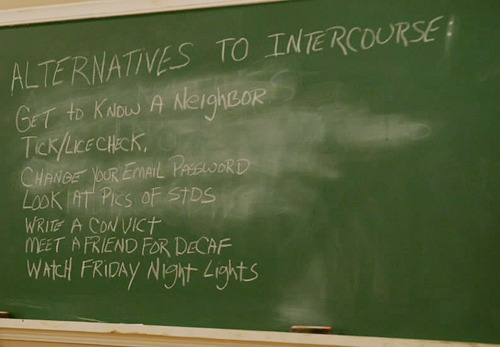 ALTERNATIVES TO INTERCOURSE!
GET to KNOW A NeigHBOR
TICK/LICE CHECK.
CHANGE YOUR EMAIL PASSWORD
LOOK AT PICS OF STDS
WRITE A CONVICT
MEET A FRIEND FOR DECAF
WATCH FRIDAY Night Lights